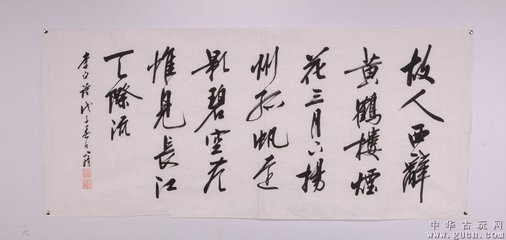 故人西辭
黄鶴樓煙
花三月下揚
州孤帆遠
影碧空尽
惟見長江
天際流
李白詩戊子春
中华古玩网
www.gucn.com